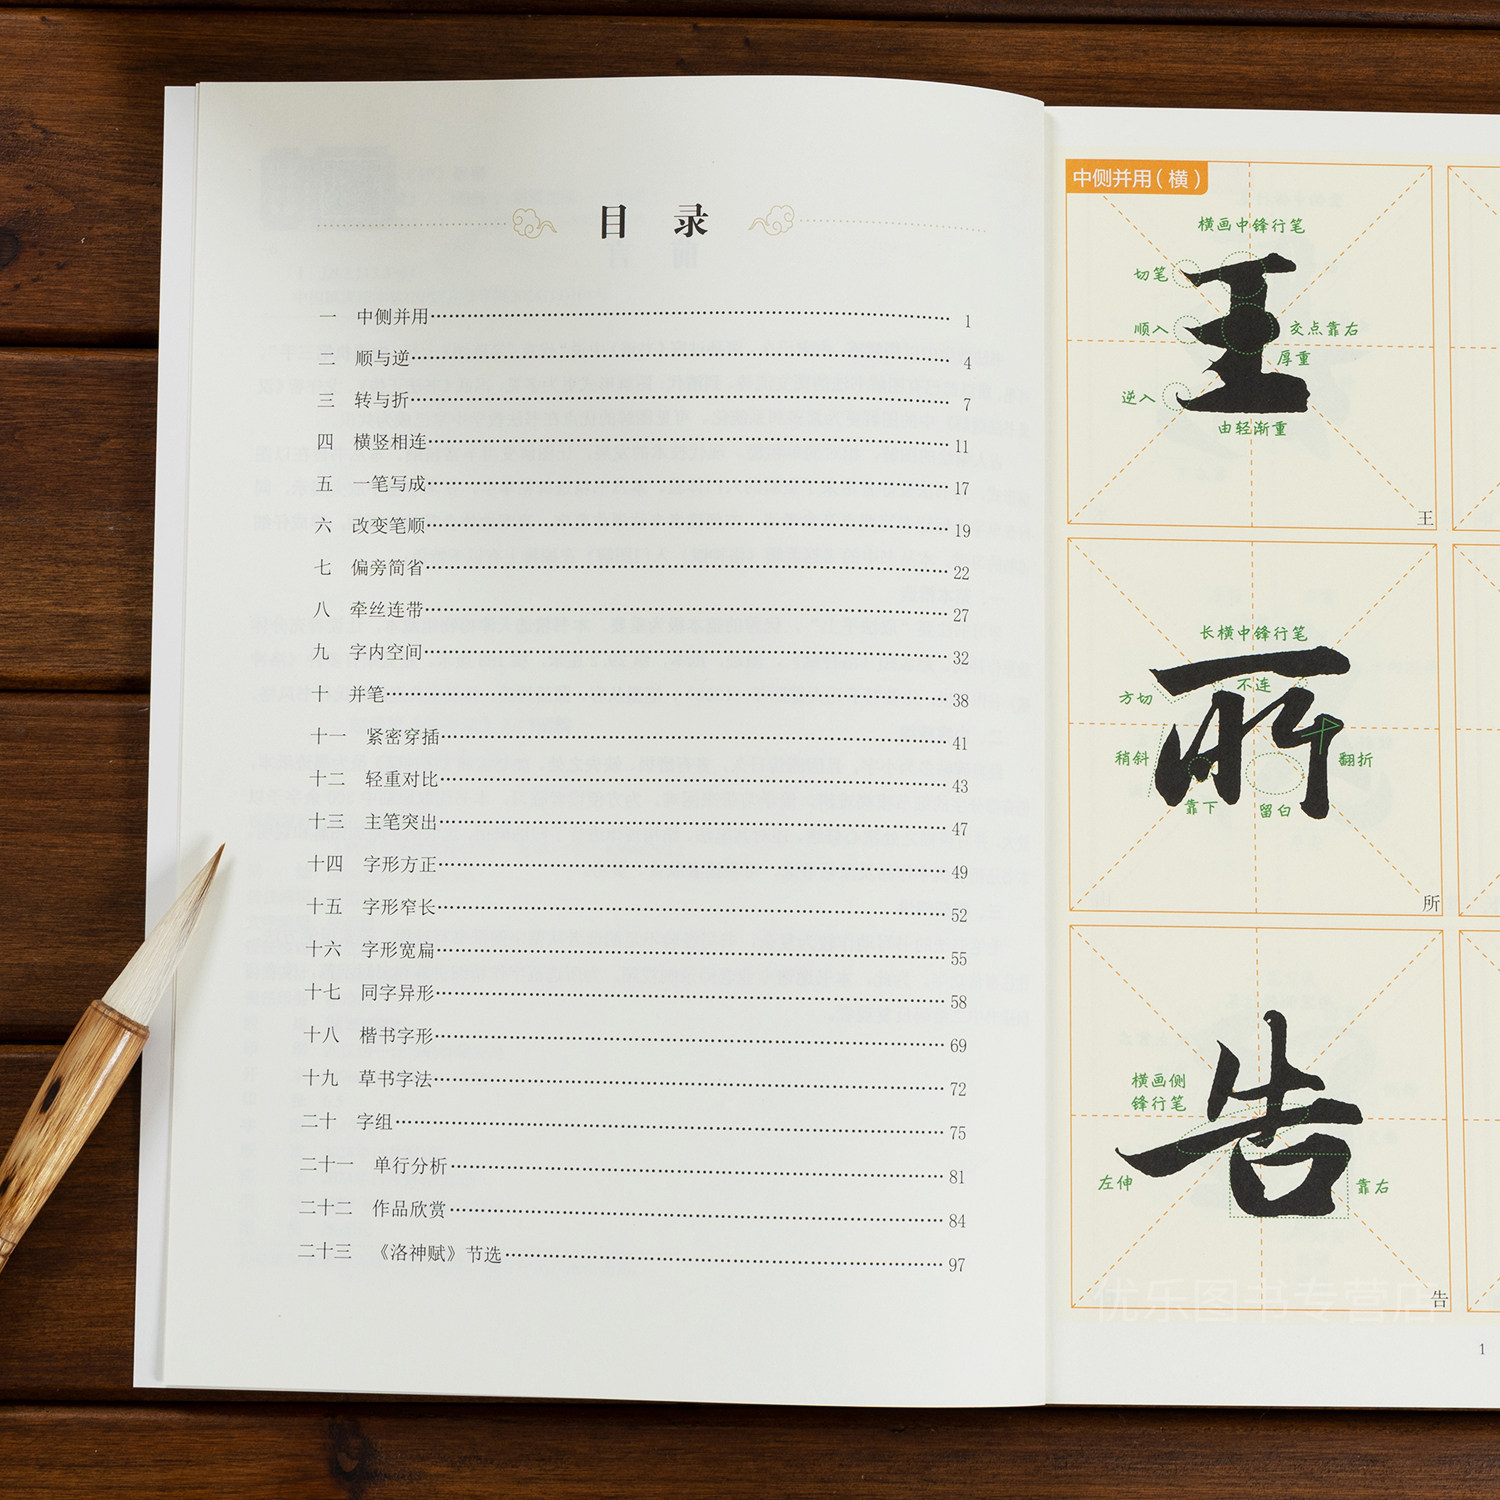 目 录
一 中侧并用 1
二 顺与逆 4
三 转与折 7
四 横竖相连 11
五 一笔写成 17
六 改变笔顺 19
七 偏旁简省 22
八 牵丝连带 27
九 字内空间 32
十 并笔 38
十一 紧密穿插 41
十二 轻重对比 43
十三 主笔突出 47
十四 字形方正 49
十五 字形窄长 52
十六 字形宽扁 55
十七 同字异形 58
十八 楷书字形 69
十九 草书字法 72
二十 字组 75
二十一 单行分析 81
二十二 作品欣赏 84
二十三 《洛神赋》节选 97
中侧并用（横）
横画中锋行笔
切笔
王
顺入
交点靠右
厚重
逆入
由轻渐重
王
长横中锋行笔
不连
方切
所
稍斜
翻折
靠下
留白
所
横画侧
锋行笔
告
左伸
靠右
告
优乐图书专营店
1